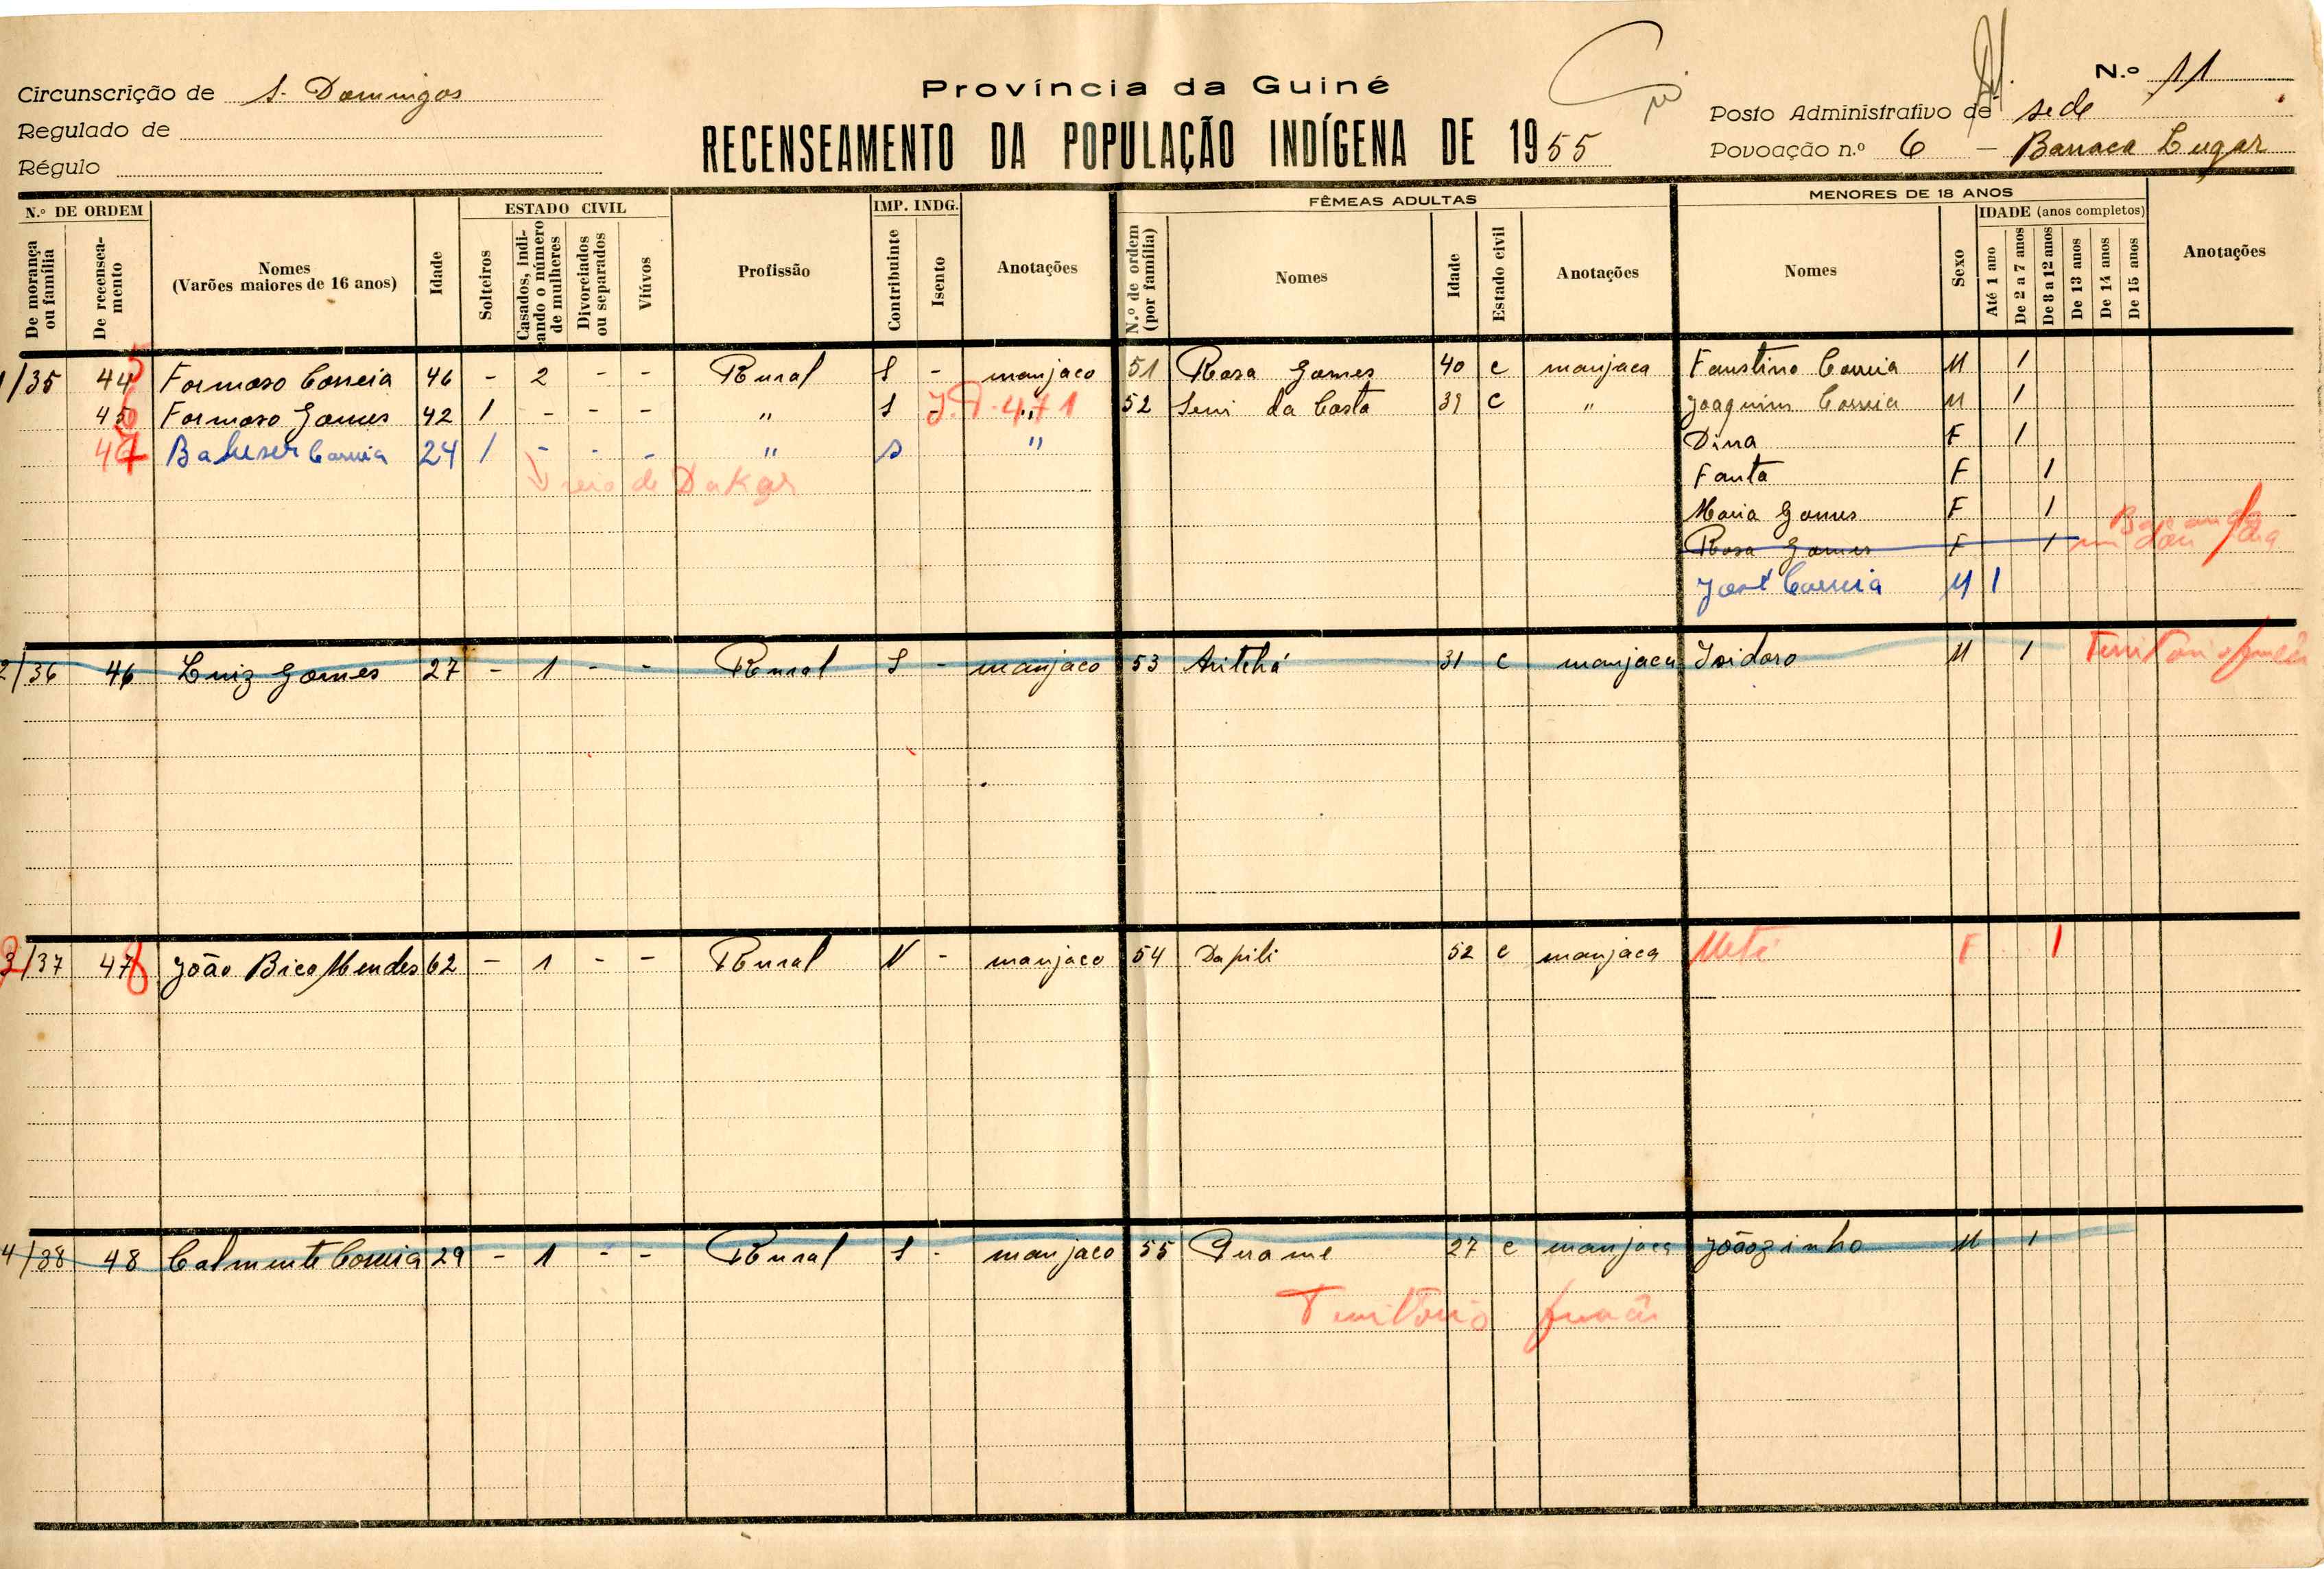 Província da Guiné
N.º 11
Circunscrição de S. Domingos
Posto Administrativo de sede
Regulado de
RECENSEAMENTO DA POPULAÇÃO INDÍGENA DE 1955
Povoação n.º 6 — Barraca Lugar
Régulo
N.º DE ORDEM
De morança ou família
De recenseamento
Nomes
(Varões maiores de 16 anos)
Idade
ESTADO CIVIL
Solteiros
Casados, indicando o número de mulheres
Divorciados ou separados
Viúvos
Profissão
IMP. INDG.
Contribuinte
Isento
Anotações
FÊMEAS ADULTAS
N.º de ordem (por família)
Nomes
Idade
Estado civil
Anotações
MENORES DE 18 ANOS
Nomes
Sexo
IDADE (anos completos)
Até 1 ano
De 2 a 7 anos
De 8 a 12 anos
De 13 anos
De 14 anos
De 15 anos
Anotações
1/35 44 5 Formoso Correia 46 - 2 - - Rural S - manjaco 51 Rosa Gomes 40 c manjaca Faustino Correia M 1
45 6 Formoso Gomes 42 1 - - - " S J.P. 471 " 52 Seni da Costa 39 c " Joaquim Correia M 1
46 7 Correia 24 1 - - - " s " Dina F 1
veio de Dakar Fanta F 1
Maria Gomes F 1
Rosa Gomes F 1
José Correia M 1
2/36 46 Luiz Gomes 27 - 1 - - Rural S - manjaco 53 Aritchá 31 c manjaca Isidoro M 1 Territorio
3/37 47 8 João Bico Mendes 62 - 1 - - Rural N - manjaco 54 Dapili 52 c manjaca Meté F 1
4/38 48 Calmente Correia 29 - 1 - - Rural S - manjaco 55 27 c manjaca Joãozinho M 1
Territorio